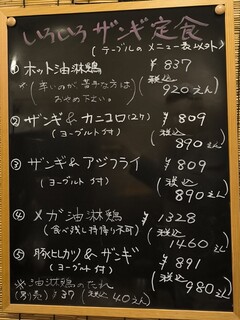 いろいろザンギ定食
(テーブルのメニュー表以外)
① ホット油淋鶏 ¥837
*(辛いのが苦手な方は おやめ下さい。 (税込 920えん)
② ザンギ&カニコロ(2ケ) ¥809
(ヨーグルト付) (税込 890えん)
③ ザンギ&アジフライ ¥809
(ヨーグルト付) (税込 890えん)
④ メガ油淋鶏 ¥1328
(食べ残し持帰り不可) (税込 1460えん)
⑤ 豚ヒレカツ&ザンギ ¥891
(ヨーグルト付) (税込 980えん)
※油淋鶏のたれ
(別売) ¥39 (税込40えん)